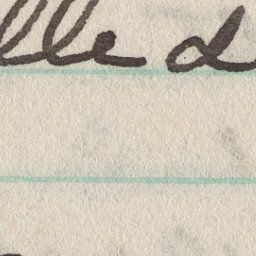 lle d